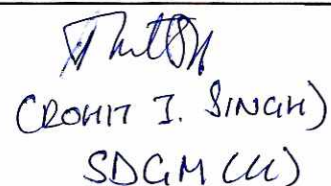 (ROHIT I. SINGH)
SDGM (U)